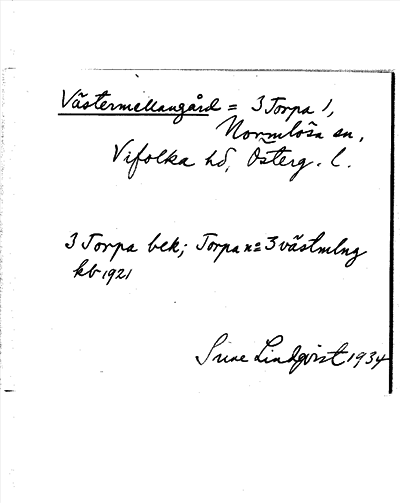 Västermellangård = 3 Torpa 1,
Normlösa sn,
Vifolka hd, Österg. l.
3 Torpa bek; Torpa n = 3 västmlng
kb 1921
Sune Lindqvist 1934